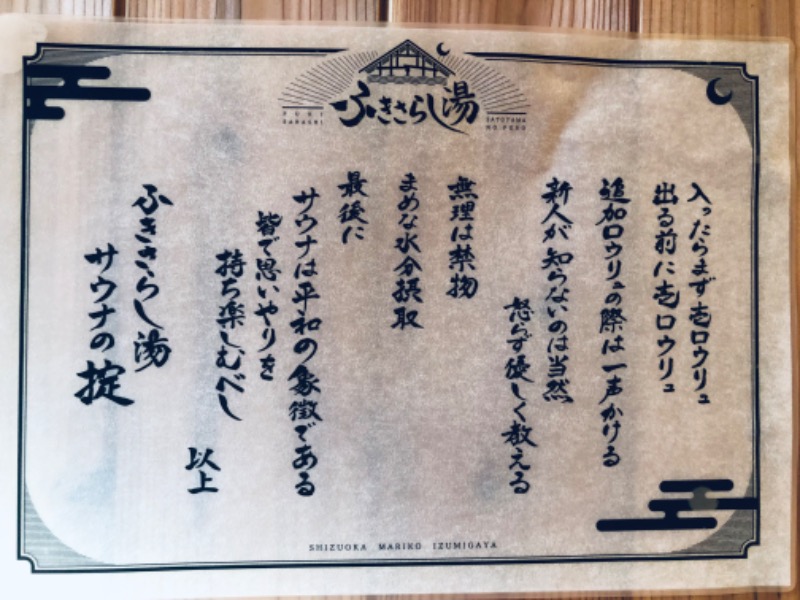 ふきさらし湯
FUKI
SARASHI
SATOYAMA
NO FURO
入ったらまず壱ロウリュ
出る前に壱ロウリュ
追加ロウリュの際は一声かける
新人が知らないのは当然
怒らず優しく教える
無理は禁物
まめな水分摂取
最後に
サウナは平和の象徴である
皆で思いやりを
持ち楽しむべし
以上
ふきさらし湯
サウナの掟
SHIZUOKA MARIKO IZUMIGAYA